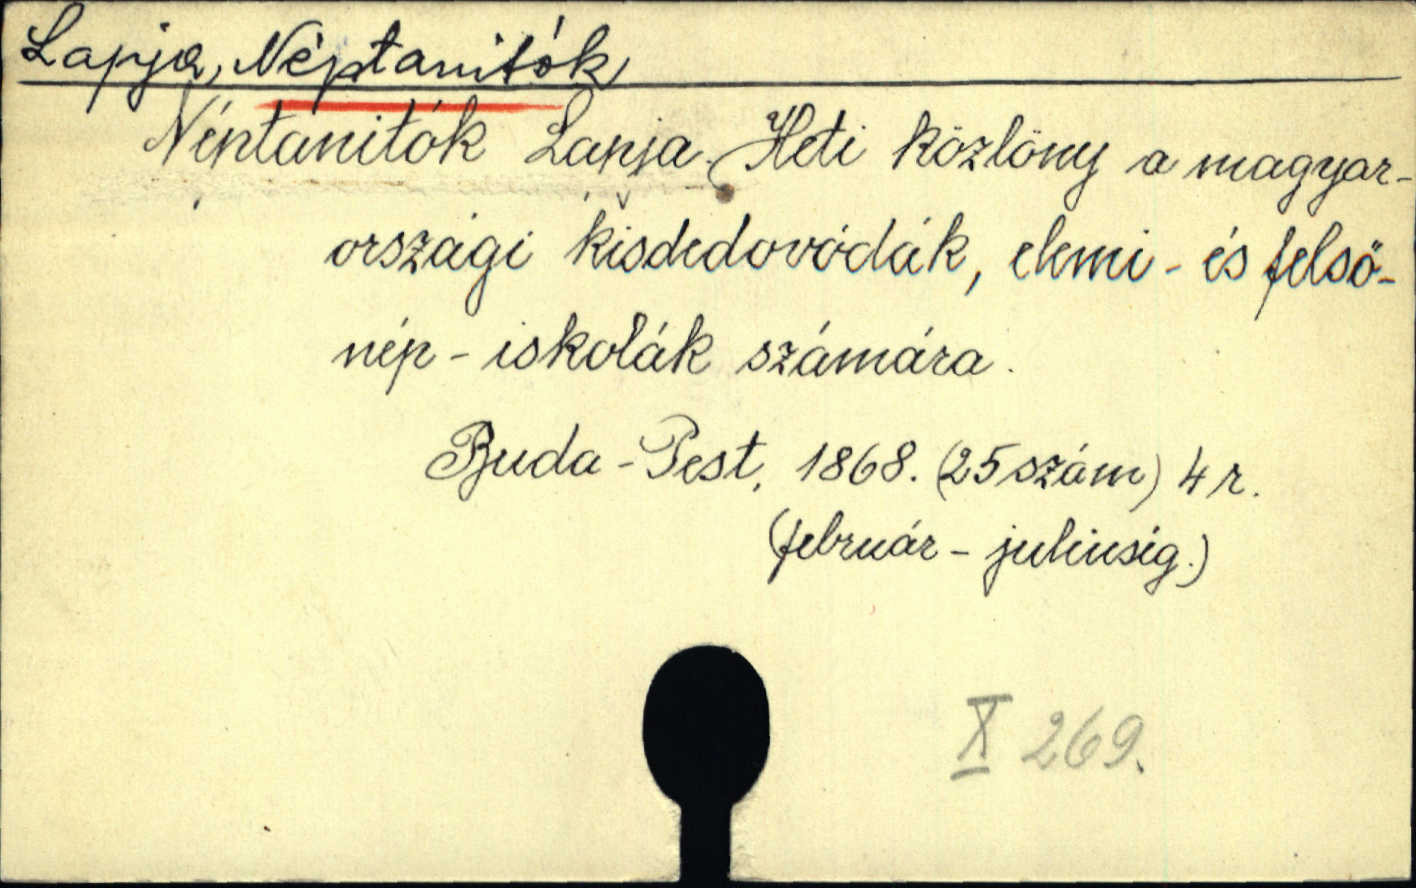 Lapja, Néptanitók
Néptanitók Lapja. Heti közlöny a magyar-
országi kisdedovódák, elemi- és felső-
nép-iskolák számára.
Buda-Pest, 1868. (25 szám) 4 r.
(február - juliusig.)
X 269.